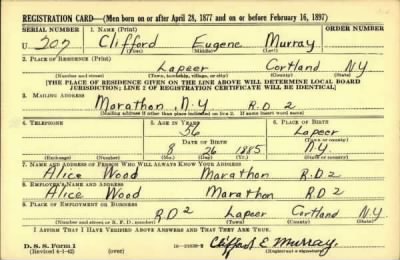 REGISTRATION CARD—(Men born on or after April 28, 1877 and on or before February 16, 1897)
SERIAL NUMBER 1. NAME (Print) ORDER NUMBER
U 207 Clifford Eugene Murray
(First) (Middle) (Last)
2. PLACE OF RESIDENCE (Print)
Lapeer Cortland N.Y
(Number and street) (Town, township, village, or city) (County) (State)
[THE PLACE OF RESIDENCE GIVEN ON THE LINE ABOVE WILL DETERMINE LOCAL BOARD
JURISDICTION; LINE 2 OF REGISTRATION CERTIFICATE WILL BE IDENTICAL]
3. MAILING ADDRESS
Marathon, N.Y R.D 2
[Mailing address if other than place indicated on line 2. If same insert word same]
4. TELEPHONE 5. AGE IN YEARS 6. PLACE OF BIRTH
56 Lapeer
DATE OF BIRTH (Town or county)
8 26 1885 N.Y.
(Exchange) (Number) (Mo.) (Day) (Yr.) (State or country)
7. NAME AND ADDRESS OF PERSON WHO WILL ALWAYS KNOW YOUR ADDRESS
Alice Wood Marathon R.D 2
8. EMPLOYER'S NAME AND ADDRESS
Alice Wood Marathon R.D 2
9. PLACE OF EMPLOYMENT OR BUSINESS
R.D 2 Lapeer Cortland N.Y.
(Number and street or R. F. D. number) (Town) (County) (State)
I AFFIRM THAT I HAVE VERIFIED ABOVE ANSWERS AND THAT THEY ARE TRUE.
D. S. S. Form 1
(Revised 4-1-42) (over) Clifford E Murray
(Registrant's signature)